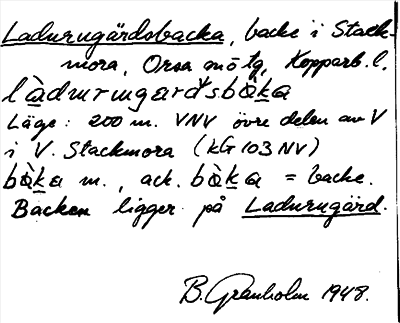 Ladurugårdsbacka, backe i Stack-
mora, Orsa sn o tg, Kopparb. l.
làdurugardsbàka
Läge: 200 m. VNV övre delen av V
i V. Stackmora (kG 103 NV)
bàka m., ack. bàka = backe.
Backen ligger på Ladurugärd.
B. Granholm 1948.